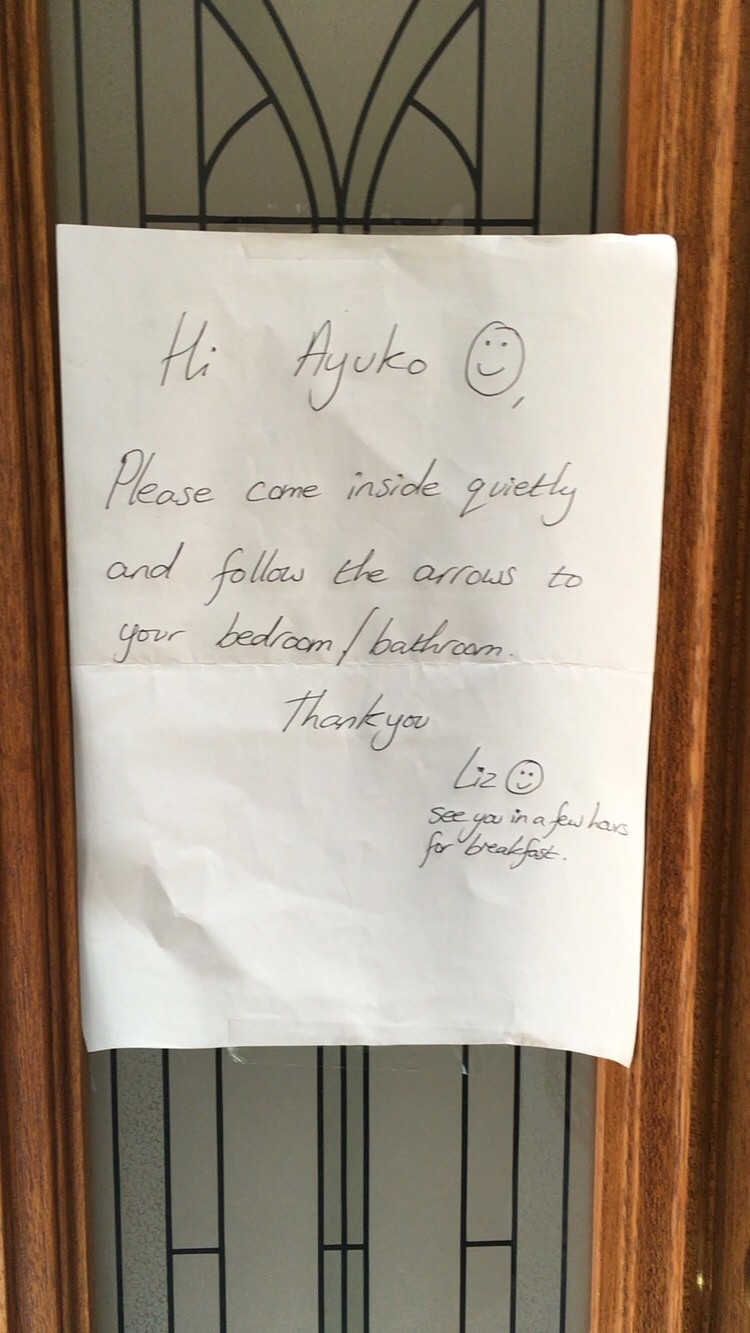 Hi Ayuko ☺,
Please come inside quietly
and follow the arrows to
your bedroom/bathroom.
Thankyou
Liz ☺
see you in a few hours
for breakfast.